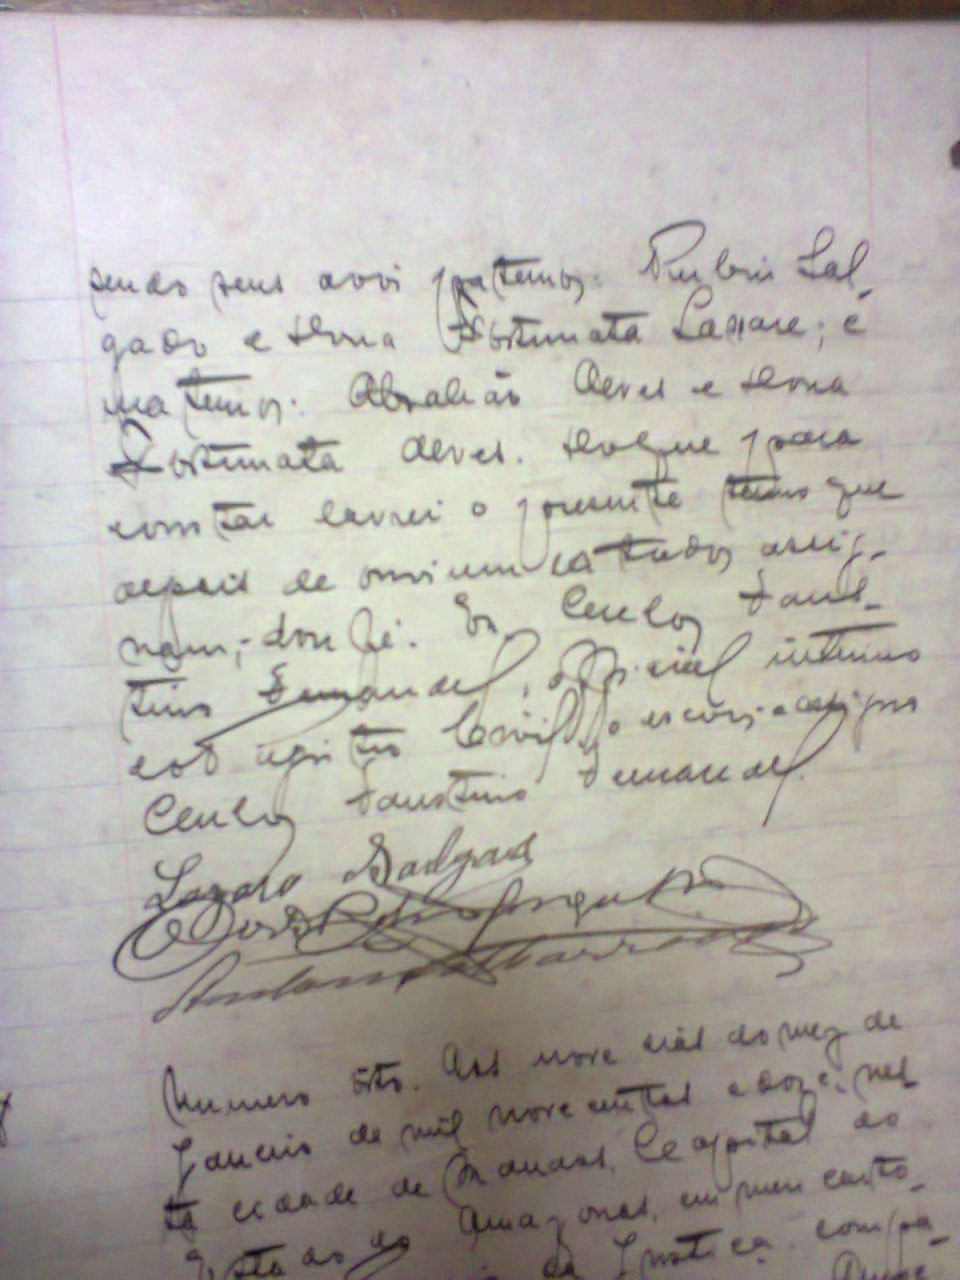 sendo seus avós paternos: Rubin Sal-
gado e dona Fortunata Sassare; e
maternos: Abrahão Alves e dona
Fortunata Alves. Do que para
constar lavrei o presente termo que
depois de ouvirem ler todos assig-
nam; dou fé. Eu, Carlos Faus-
tino Fernandes, official interino
do registro Civil, o escrevi e assigno
Carlos Faustino Fernandes.
Lazaro Salgado
José
Antonio
Numero oito. Aos nove dias do mez de
Janeiro de mil novecentos e doze, nes-
ta cidade de Manáos, Capital do
Estado do Amazonas, em meu carto-
da Justiça compa-